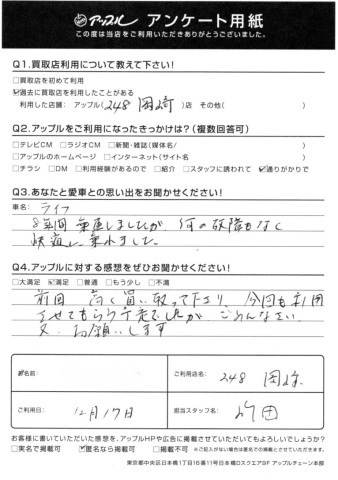 アップル アンケート用紙
この度は当店をご利用いただきありがとうございました。
Q1.買取店利用について教えて下さい!
□買取店を初めて利用
☑過去に買取店を利用したことがある
利用した店舗: アップル(248 岡崎)店 その他( )
Q2.アップルをご利用になったきっかけは?(複数回答可)
□テレビCM □ラジオCM □新聞・雑誌(媒体名/ )
□アップルのホームページ □インターネット(サイト名 )
□チラシ □DM □利用経験があるので □紹介 □スタッフに誘われて ☑通りがかりで
Q3.あなたと愛車との思い出をお聞かせください!
車名: ライフ
8年間 乗車しましたが 何の故障もなく
快適に乗れました。
Q4.アップルに対する感想をぜひお聞かせください!
□大満足 ☑満足 □普通 □もう少し □不満
前回 高く買い取って下さり、今回も利用
させてもらう予定でしたが ごめんなさい
又、お願いします
お名前:
ご利用店名: 248 岡崎
ご利用日: 12月17日
担当スタッフ名:
お客様に書いていただいた感想を、アップルHPや広告に掲載させていただいてもよろしいでしょうか?
□実名で掲載可 ☑匿名なら掲載可 □掲載不可 ※ご記入がない場合は匿名での掲載とさせていただきます。
東京都中央区日本橋1丁目16番11号日本橋ロスクエア9F アップルチェーン本部